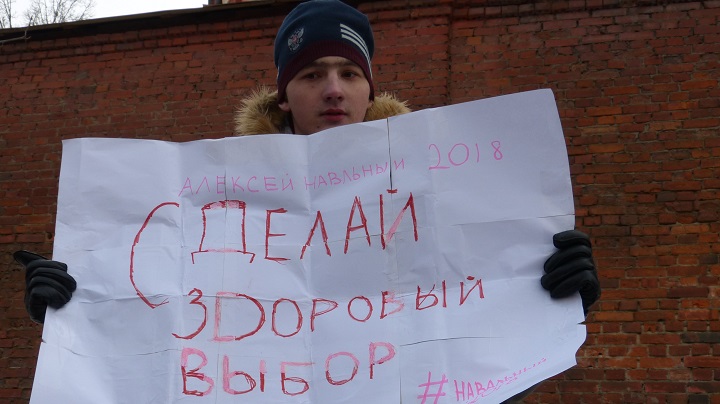 АЛЕКСЕЙ НАВЛЬНЫЙ 2018
СДЕЛАЙ
ЗДОРОВЫЙ
ВЫБОР
#НАВАЛЬНЫЙ